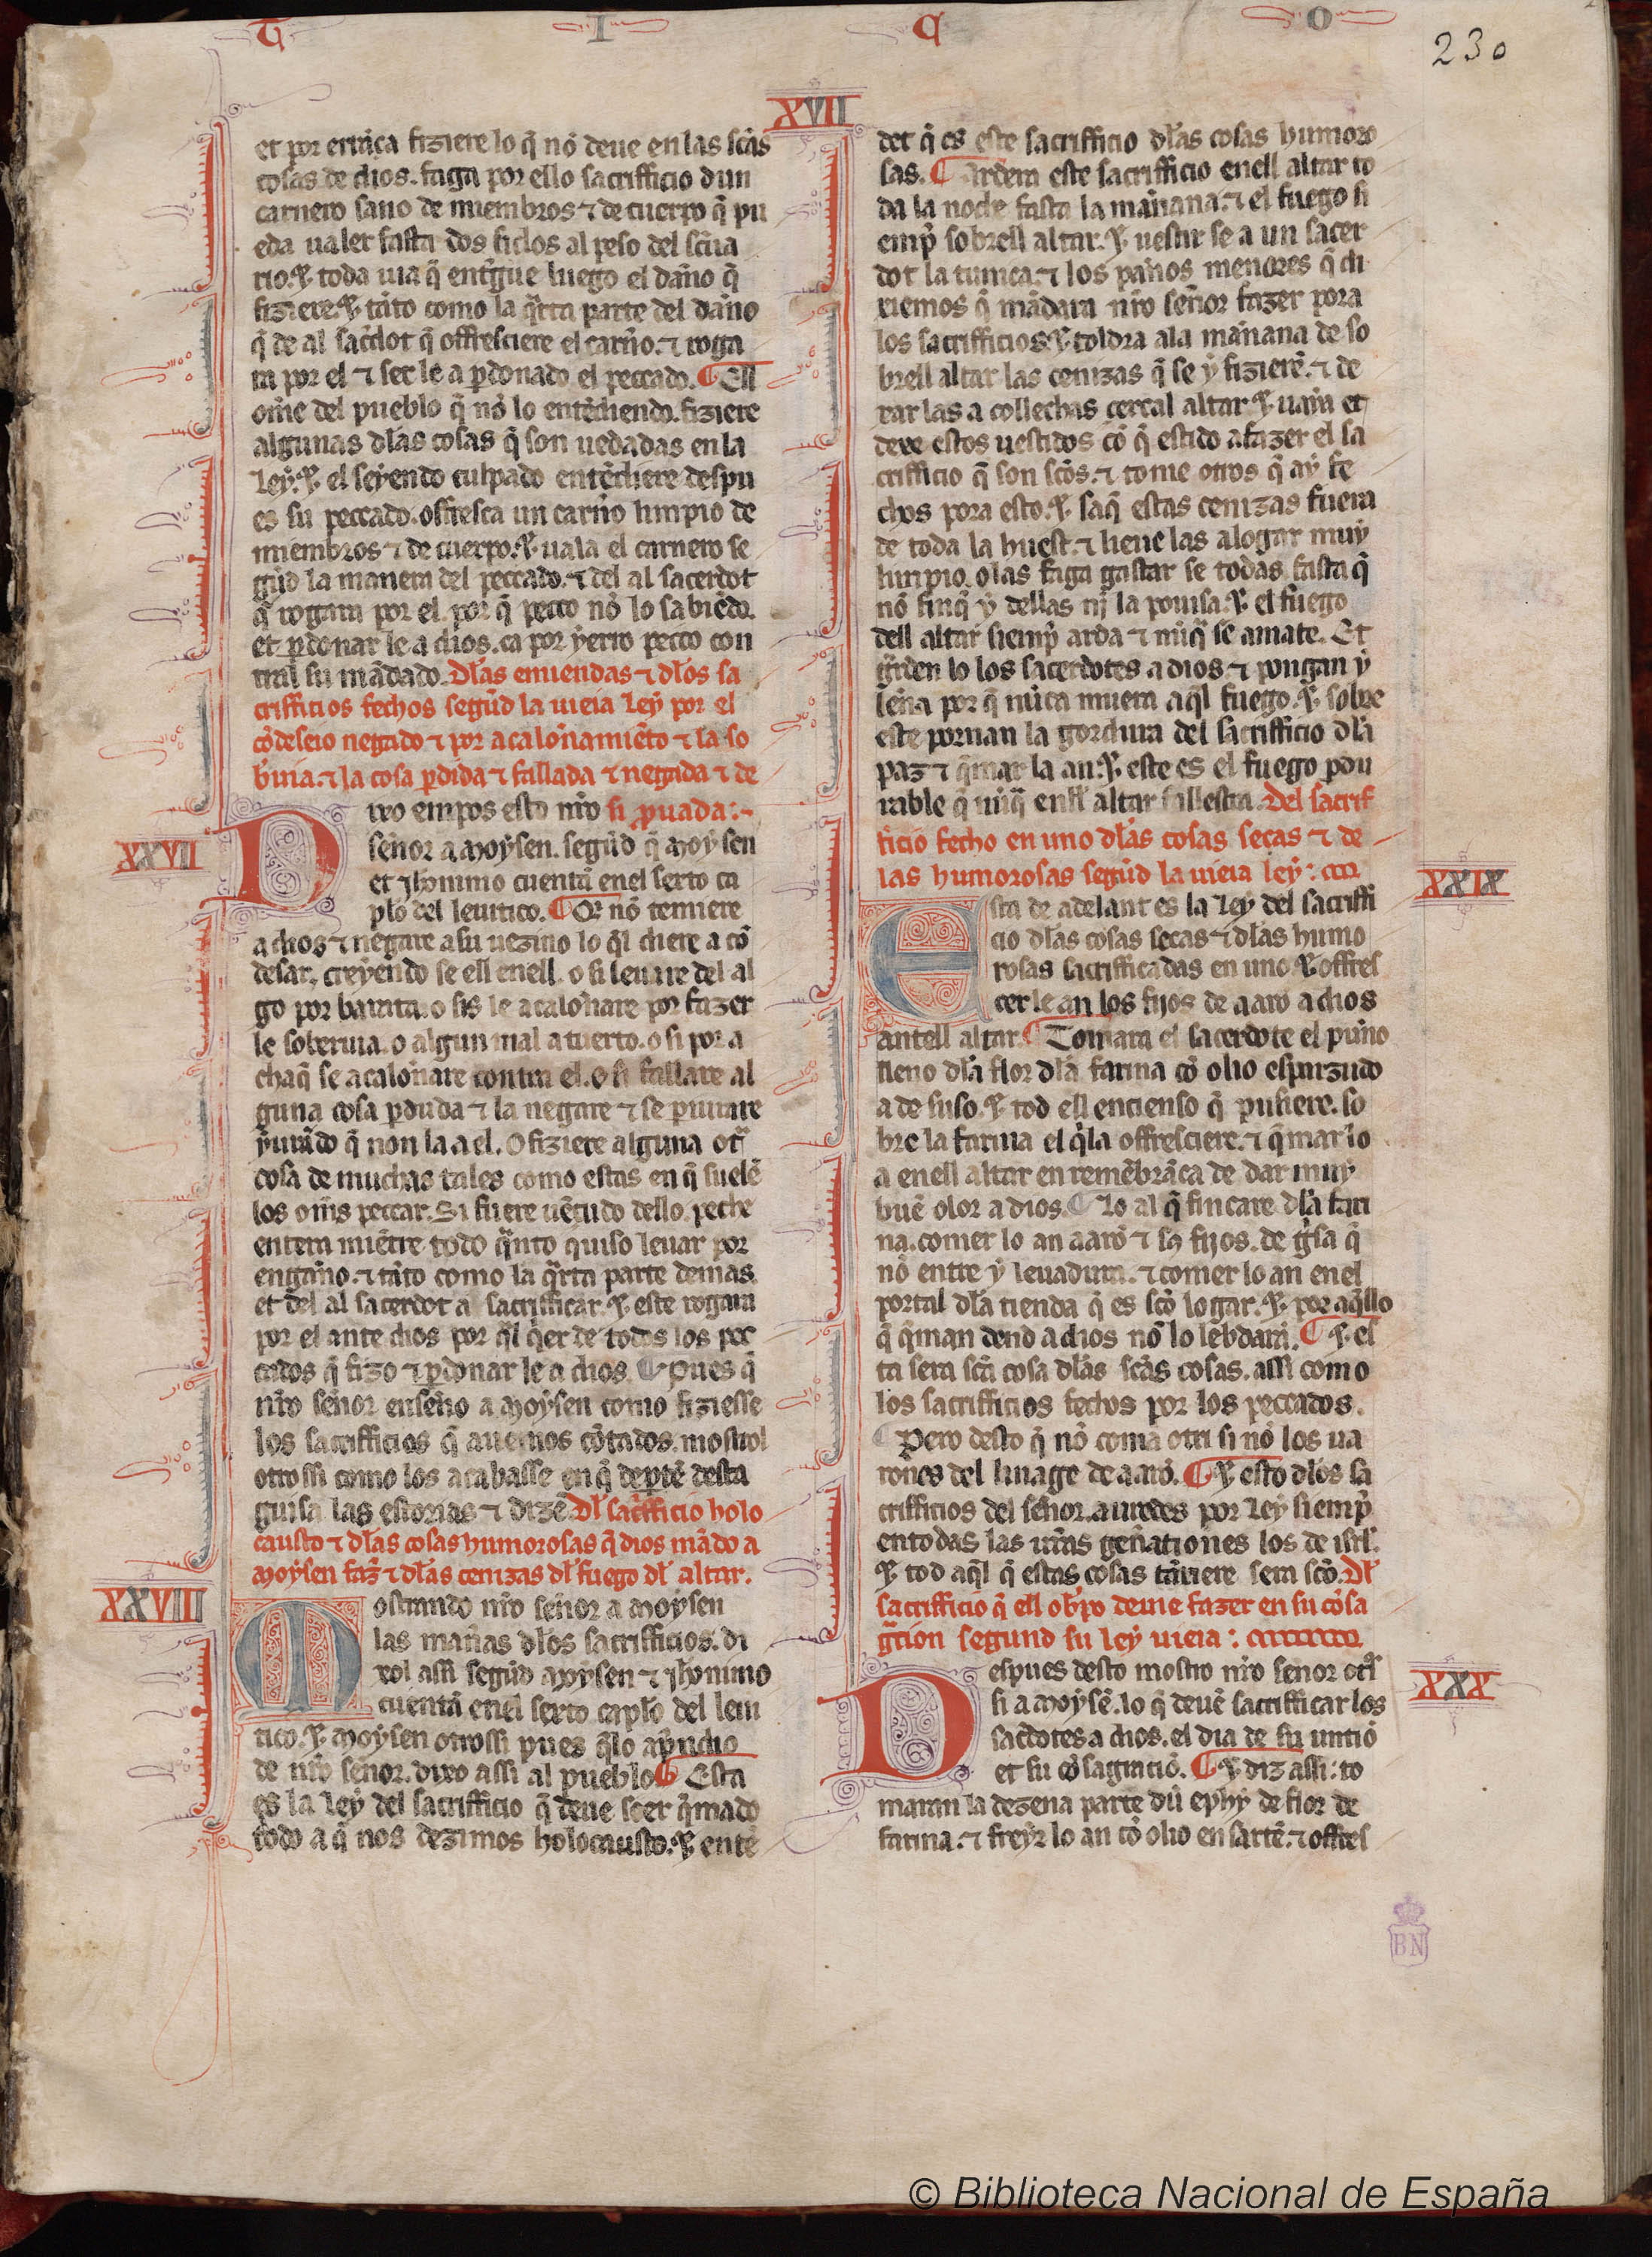 T I C O
230
XVII
et por erra᷑ca fiziere lo q̃ nõ deue en las sc̃as
cosas de dios. faga por ello sacrifficio dun
carnero sano de miembros ⁊ de cuerpo q̃ pu
eda ualer fasta dos siclos al peso del sc̃ua
rio. ⁊ toda uia q̃ entr̃gue luego el danno q̃
fiziere. ⁊ tãto como la q̃rta parte del danno
q̃ de al sac̃dot q̃ offresciere el carñro. ⁊ roga
ra por el ⁊ ser le a ꝑdonado el peccado. ¶ Ell
om̃e del pueblo q̃ nõ lo entẽdiendo. fiziere
algunas dl̃as cosas q̃ son uedadas en la
Ley. ⁊ el seyendo culpado entẽdiere despu
es su peccado. offresca un carñro limpio de
miembros ⁊ de cuerpo. ⁊ uala el carnero se
gũd la manera del peccado. ⁊ del al sacerdot
q̃ rogara por el. por q̃ pecco nõ lo sabiẽdo.
et ꝑdonar le a dios. ca por yerro pecco con
tral su mãdado. Dl̃as emiendas ⁊ dl̃os sa
crifficios fechos segũd la uieia Ley por el
cõdeseio negado ⁊ por acalonnamiẽto ⁊ la so
b̃uia. ⁊ la cosa ꝑdida ⁊ fallada ⁊ negada ⁊ de
si ꝓuada:~
XXVII
Dixo empos esto nr̃o
sennor a Moysen. segũd q̃ Moysen
et Jheronimo cuentã enel sexto ca
pl̃o del leuitico. ¶ Qi nõ temiere
a dios ⁊ negare a su uezino lo q̃l diere a cõ
desar, creyendo se ell enell. o sil leuare del al
go por barata. o sis le acalonnare por fazer
le soberuia. o algun mal a tuerto. o si por a
chaq̃ se acalonnare contra el. O si fallare al
guna cosa ꝑduda ⁊ la negare ⁊ se ꝑiurare
yurãdo q̃ non la a el. O fiziere alguna otr̃
cosa de muchas tales como estas en q̃ suelẽ
los om̃s peccar. Si fuere uẽçudo dello. peche
entera miẽtre todo q̃nto quiso leuar por
enganno. ⁊ tãto como la q̃rta parte demas.
et del al sacerdot a sacrifficar. ⁊ este rogara
por el ante dios por q̃l q̃er de todos los pec
cados q̃ fizo ⁊ ꝑdonar le a dios. ¶ Pues q̃
nr̃o sennor ensenno a Moysen como fiziesse
los sacrifficios q̃ auemos cõtados. mostrol
otrossi como los acabasse en q̃ deꝑtẽ desta
guisa las estorias ⁊ dizẽ. Dl̃ sacr̃fficio holo
causto ⁊ dl̃as cosas humorosas q̃ dios mãdo a
Moysen faz̃ ⁊ dl̃as cenizas dl̃ fuego dl̃ altar.
XXVIII
Mostrando nr̃o sennor a Moysen
las man̾as dl̃os sacrifficios. di
xol assi segũd Moysen ⁊ Jheronimo
cuentã enel sexto capl̃o del leui
tico. ⁊ Moysen otrossi pues q̃lo apr̃ndio
de nr̃o sennor. dixo assi al pueblo ¶ Esta
es la Ley del sacrifficio q̃ deue seer q̃mado
todo a q̃ nos dezimos holocausto. ⁊ entẽ
det q̃ es este sacrifficio dl̃as cosas humoro
sas. ¶ Ardera este sacrifficio enell altar to
da la noche fasta la mannana. ⁊ el fuego si
emp̃ sobrell altar. ⁊ uestir se a un sacer
dot la tunica. ⁊ los pannos menores q̃ di
xiemos q̃ mãdara nr̃o sennor fazer pora
los sacrifficios. ⁊ toldra ala mannana de so
brell altar las cenizas q̃ se y fizierẽ. ⁊ de
xar las a collechas cercal altar. ⁊ uaya et
dexe estos uestidos cõ q̃ estido a fazer el sa
crifficio q̃ son sc̃os. ⁊ tome otros q̃ ay fe
chos pora esto. ⁊ saq̃ estas cenizas fuera
de toda la huest. ⁊ lieue las a logar muy
limpio. o las faga gastar se todas fasta q̃
nõ finq̃ y dellas nj̃ la pouisa. ⁊ el fuego
dell altar siemp̃ arda ⁊ nũq̃ se amate. Et
gr̃den lo los sacerdotes a dios. ⁊ pongan y
lenna por q̃ nũca muera aq̃l fuego. ⁊ sobre
este pornan la gordura del sacrifficio dl̃a
paz. ⁊ q̃mar la an. ⁊ este es el fuego ꝑdu
rable q̃ nũq̃ enell altar fallesca. Del sacrif
ficio fecho en uno dl̃as cosas secas ⁊ de
las humorosas segũd la uieia ley:
XXIX
Esta de adelant es la Ley del sacriffi
cio dl̃as cosas secas ⁊ dl̃as humo
rosas sacrifficadas en uno. ⁊ offres
cer le an los fijos de aarõ a dios
antell altar. ¶ Tomara el sacerdote el punno
lleno dl̃a flor dl̃a farina cõ olio esparzudo
a de suso. ⁊ tod ell encienso q̃ pusiere. so
bre la farina el q̃ la offresciere. ⁊ q̃mar lo
a enell altar en remẽbrãça de dar muy
buẽ olor a dios. ¶ Lo al q̃ fincare dl̃a fari
na. comer lo an aarõ ⁊ sꝯ fijos. de g̃sa q̃
nõ entre y leuadura. ⁊ comer lo an enel
portal dl̃a tienda q̃ es sc̃o logar. ⁊ por aq̃llo
q̃ q̃man dend a dios nõ lo lebdarã. ¶ ⁊ es
ta sera sc̃a cosa dl̃as sc̃as cosas. assi como
los sacrifficios fechos por los peccados.
¶ Pero desto q̃ nõ coma otri si nõ los ua
rones del linage de aarõ. ¶ ⁊ esto dl̃os sa
crifficios del sennor. auredes por Ley siemp̃
en todas las ur̃as gen̾ationes los de isrl̃.
⁊ tod aq̃l q̃ estas cosas tãniere sera sc̃o. Dl̃
sacrifficio q̃ ell ob̃po deuie fazer en su cõsa
gr̃tion segund su Ley uieia:
XXX
Despues desto mostro nr̃o sennor otrs̃
si a Moysẽ. lo q̃ deuẽ sacrifficar los
sac̃dotes a dios. el dia de su untiõ
et su cõsagratiõ. ¶ ⁊ diz assi: to
maran la dezena parte dũ ephy de flor de
farina. ⁊ freyr lo an cõ olio en sartẽ. ⁊ offres
BN
© Biblioteca Nacional de España